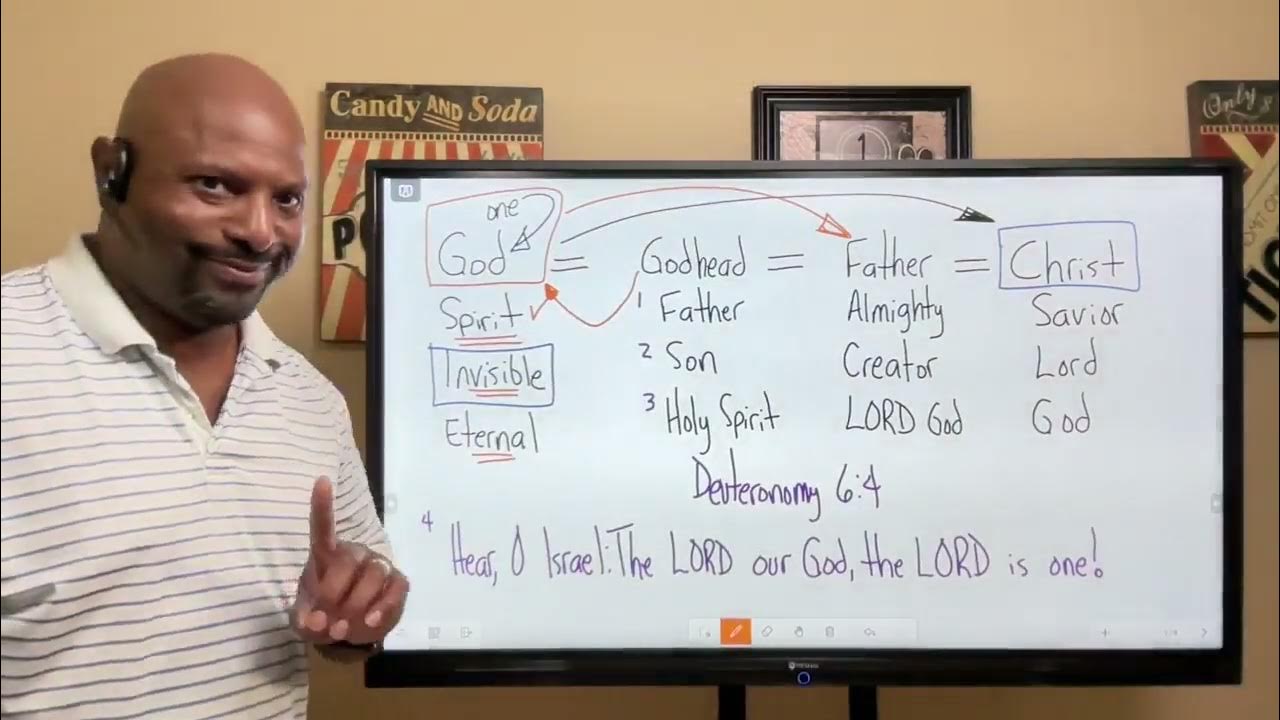 Candy AND Soda
Only 8
PO
1
one
God = Godhead = Father = Christ
Spirit 1 Father Almighty Savior
Invisible 2 Son Creator Lord
Eternal 3 Holy Spirit LORD God God
Deuteronomy 6:4
4 Hear, O Israel: The LORD our God, the LORD is one!